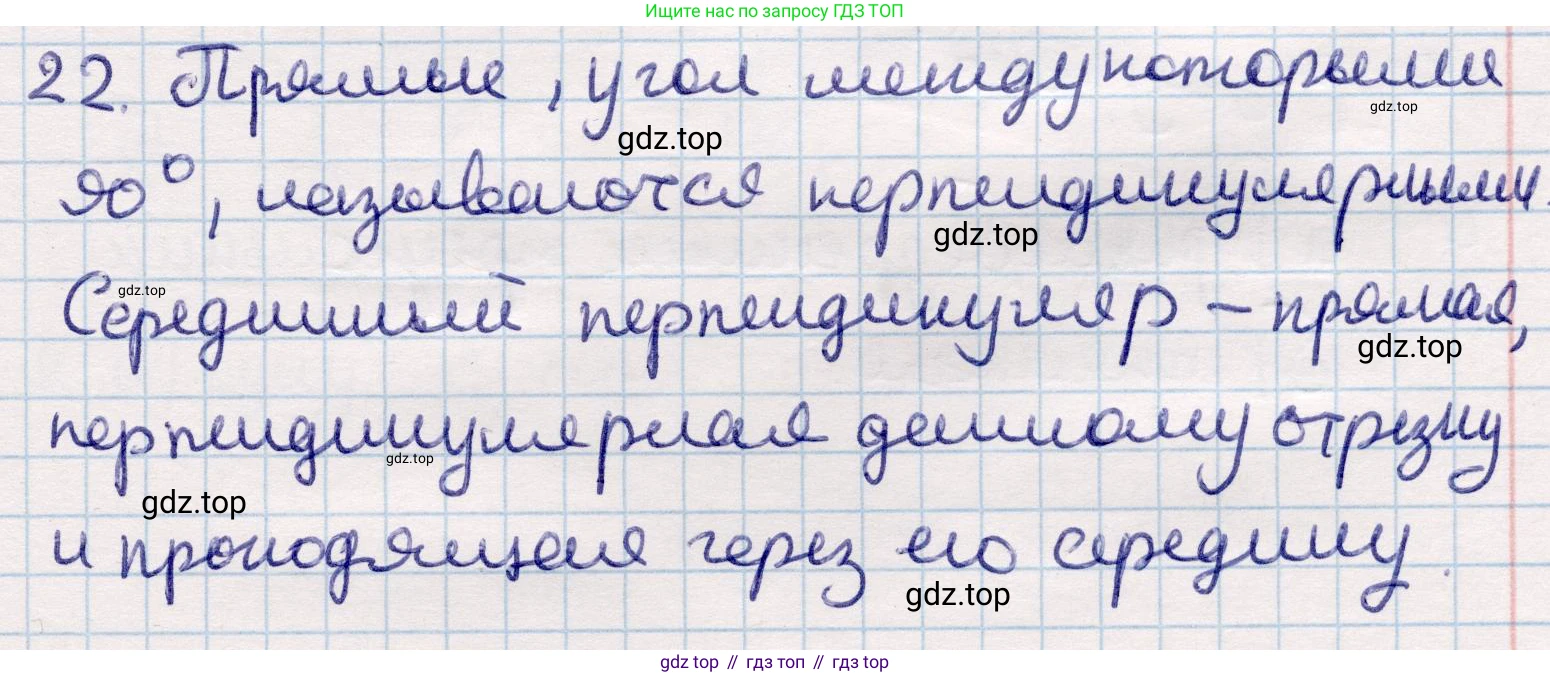 Ищите нас по запросу ГДЗ ТОП
22. Прямые, угол между которыми
gdz.top
gdz.top
90°, называются перпендикулярными.
gdz.top
Серединный перпендикуляр – прямая,
gdz.top
gdz.top
перпендикулярная данному отрезку
gdz.top
gdz.top
и проходящая через его середину.
gdz.top
gdz top // гдз топ // гдз top